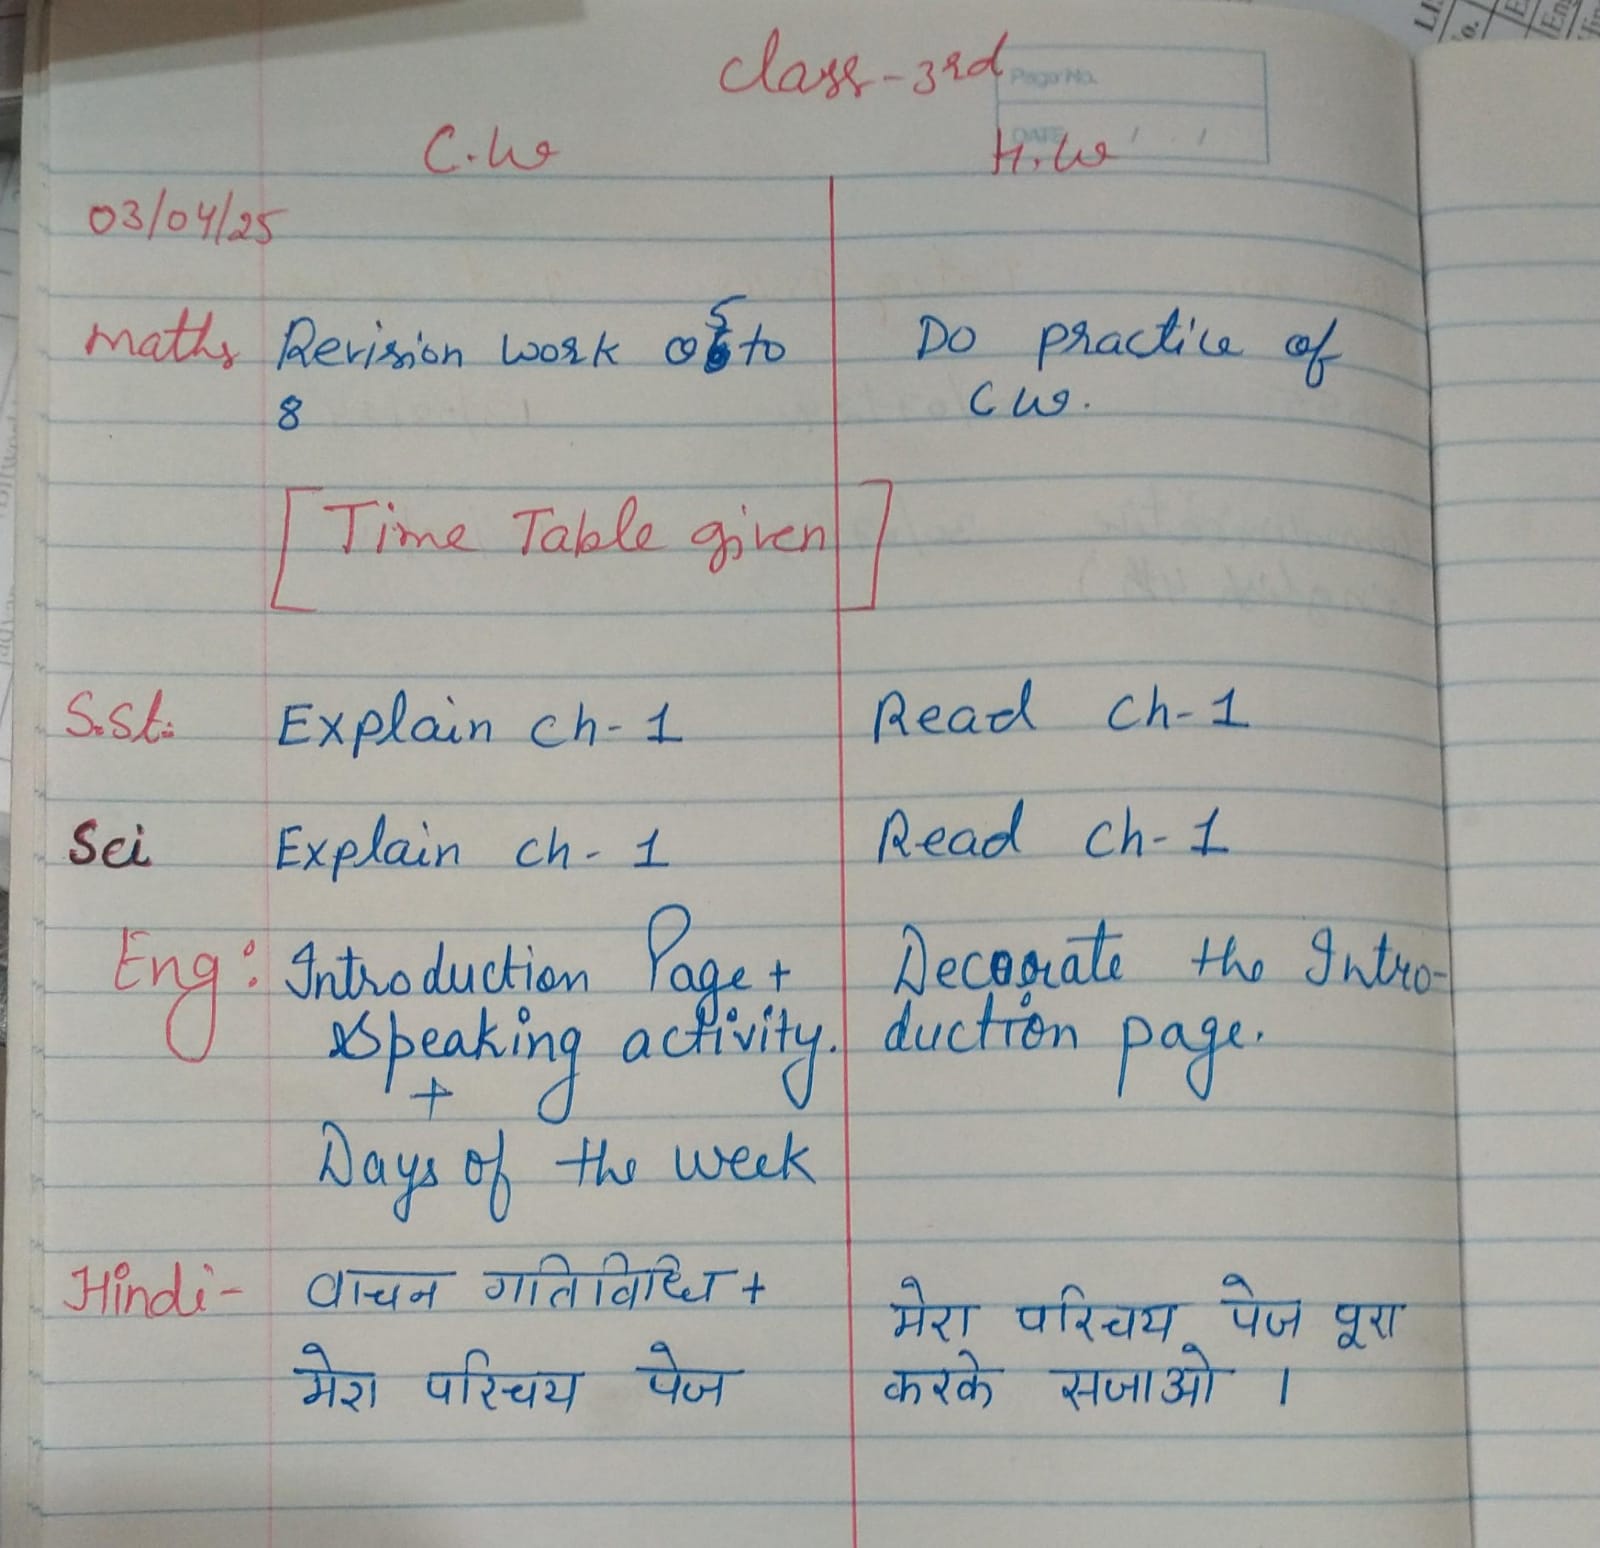 Class-3rd
Page No.
DATE / /
C.W H.W
03/04/25
Maths Revision work of 5 to Do practice of
8 C W.
[Time Table given]
S.St. Explain Ch-1 Read Ch-1
Sci Explain Ch-1 Read Ch-1
Eng: Introduction Page + Decorate the Intro-
Speaking activity. duction page.
+
Days of the week
Hindi- वाचन गतिविधि + मेरा परिचय पेज पूरा
मेरा परिचय पेज करके सजाओ ।